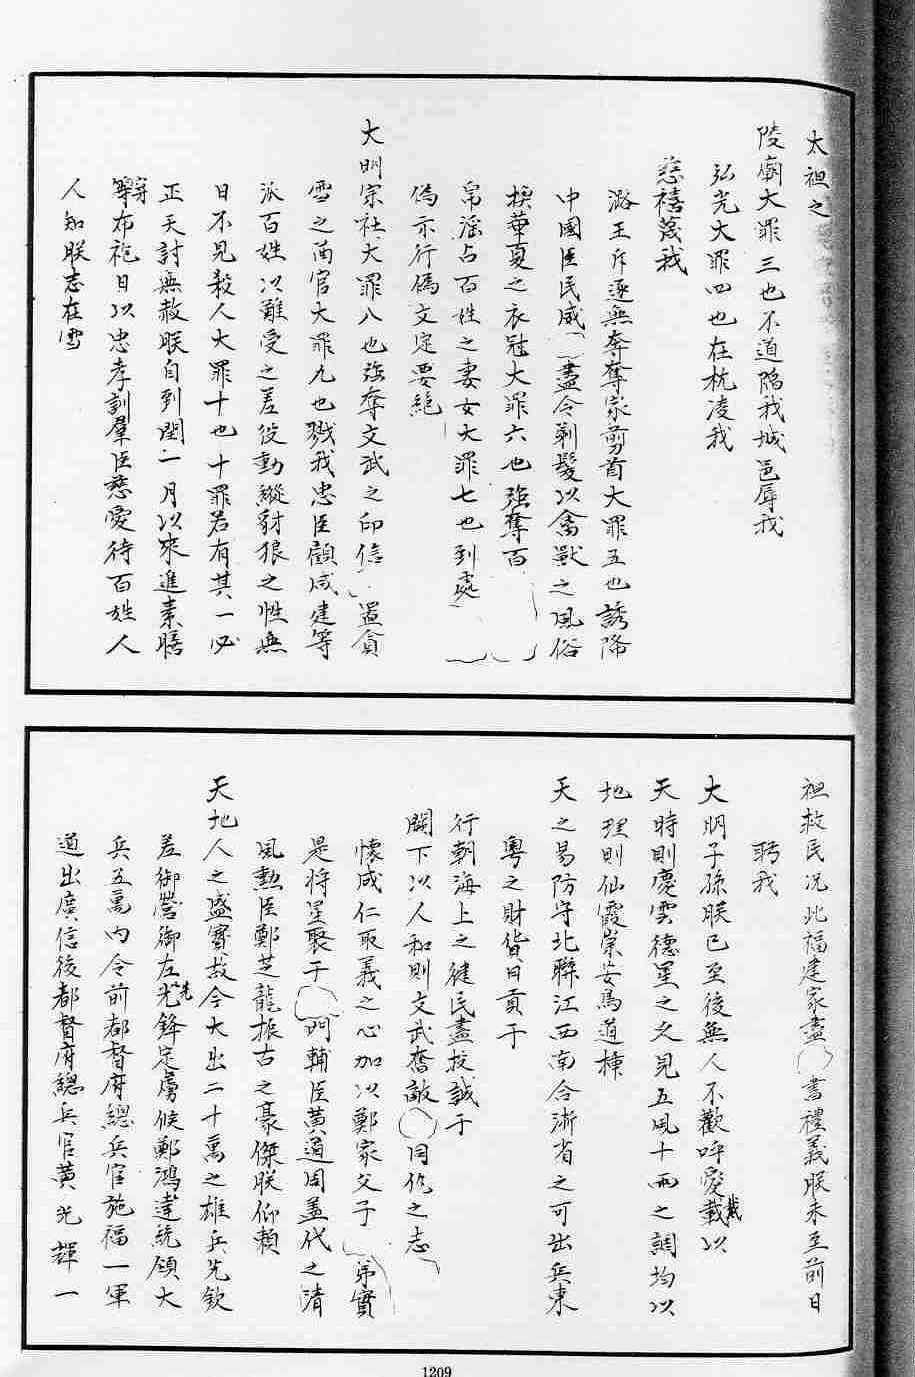 太祖之
陵廟大罪三也不道陷我城邑辱我
弘光大罪四也在杭凌我
慈禧蔑我
潞王斥逐無奔奪家剪首大罪五也誘降
中國臣民咸盡令剃髮以禽獸之風俗
換華夏之衣冠大罪六也強奪百
帛淫占百姓之妻女大罪七也到處
偽示行偽文定要絕
大明宗社大罪八也強奪文武之印信置貪
雪之南官大罪九也戮我忠臣顧咸建等
派百姓以難受之差役動縱豺狼之性無
日不見殺人大罪十也十罪若有其一必
正天討無赦朕自到閩二月以來進素膳
穿布袍日以忠孝訓羣臣慈愛待百姓人
人知朕志在雪
祖救民况此福建家盡書禮義朕未至前日
聘我
大明子孫朕已至後無人不歡呼愛戴以
天時則慶雲德星之交見五風十雨之調均以
地理則仙霞崇安馬道棟
天之易防守北聯江西南合浙省之可出兵東
粵之財貨日貢于
行朝海上之健民盡投誠于
闕下以人和則文武奮敵同仇之志
懷成仁取義之心加以鄭家父子弟實
是将星聚于門輔臣黃道周蓋代之清
風勲臣鄭芝龍振古之豪傑朕仰賴
天地人之盛實故今大出二十萬之雄兵先欽
差御營御左先鋒定虜候鄭鴻逵統領大
兵五萬內令前都督府總兵官施福一軍
道出廣信後都督府總兵官黃光輝一
1209